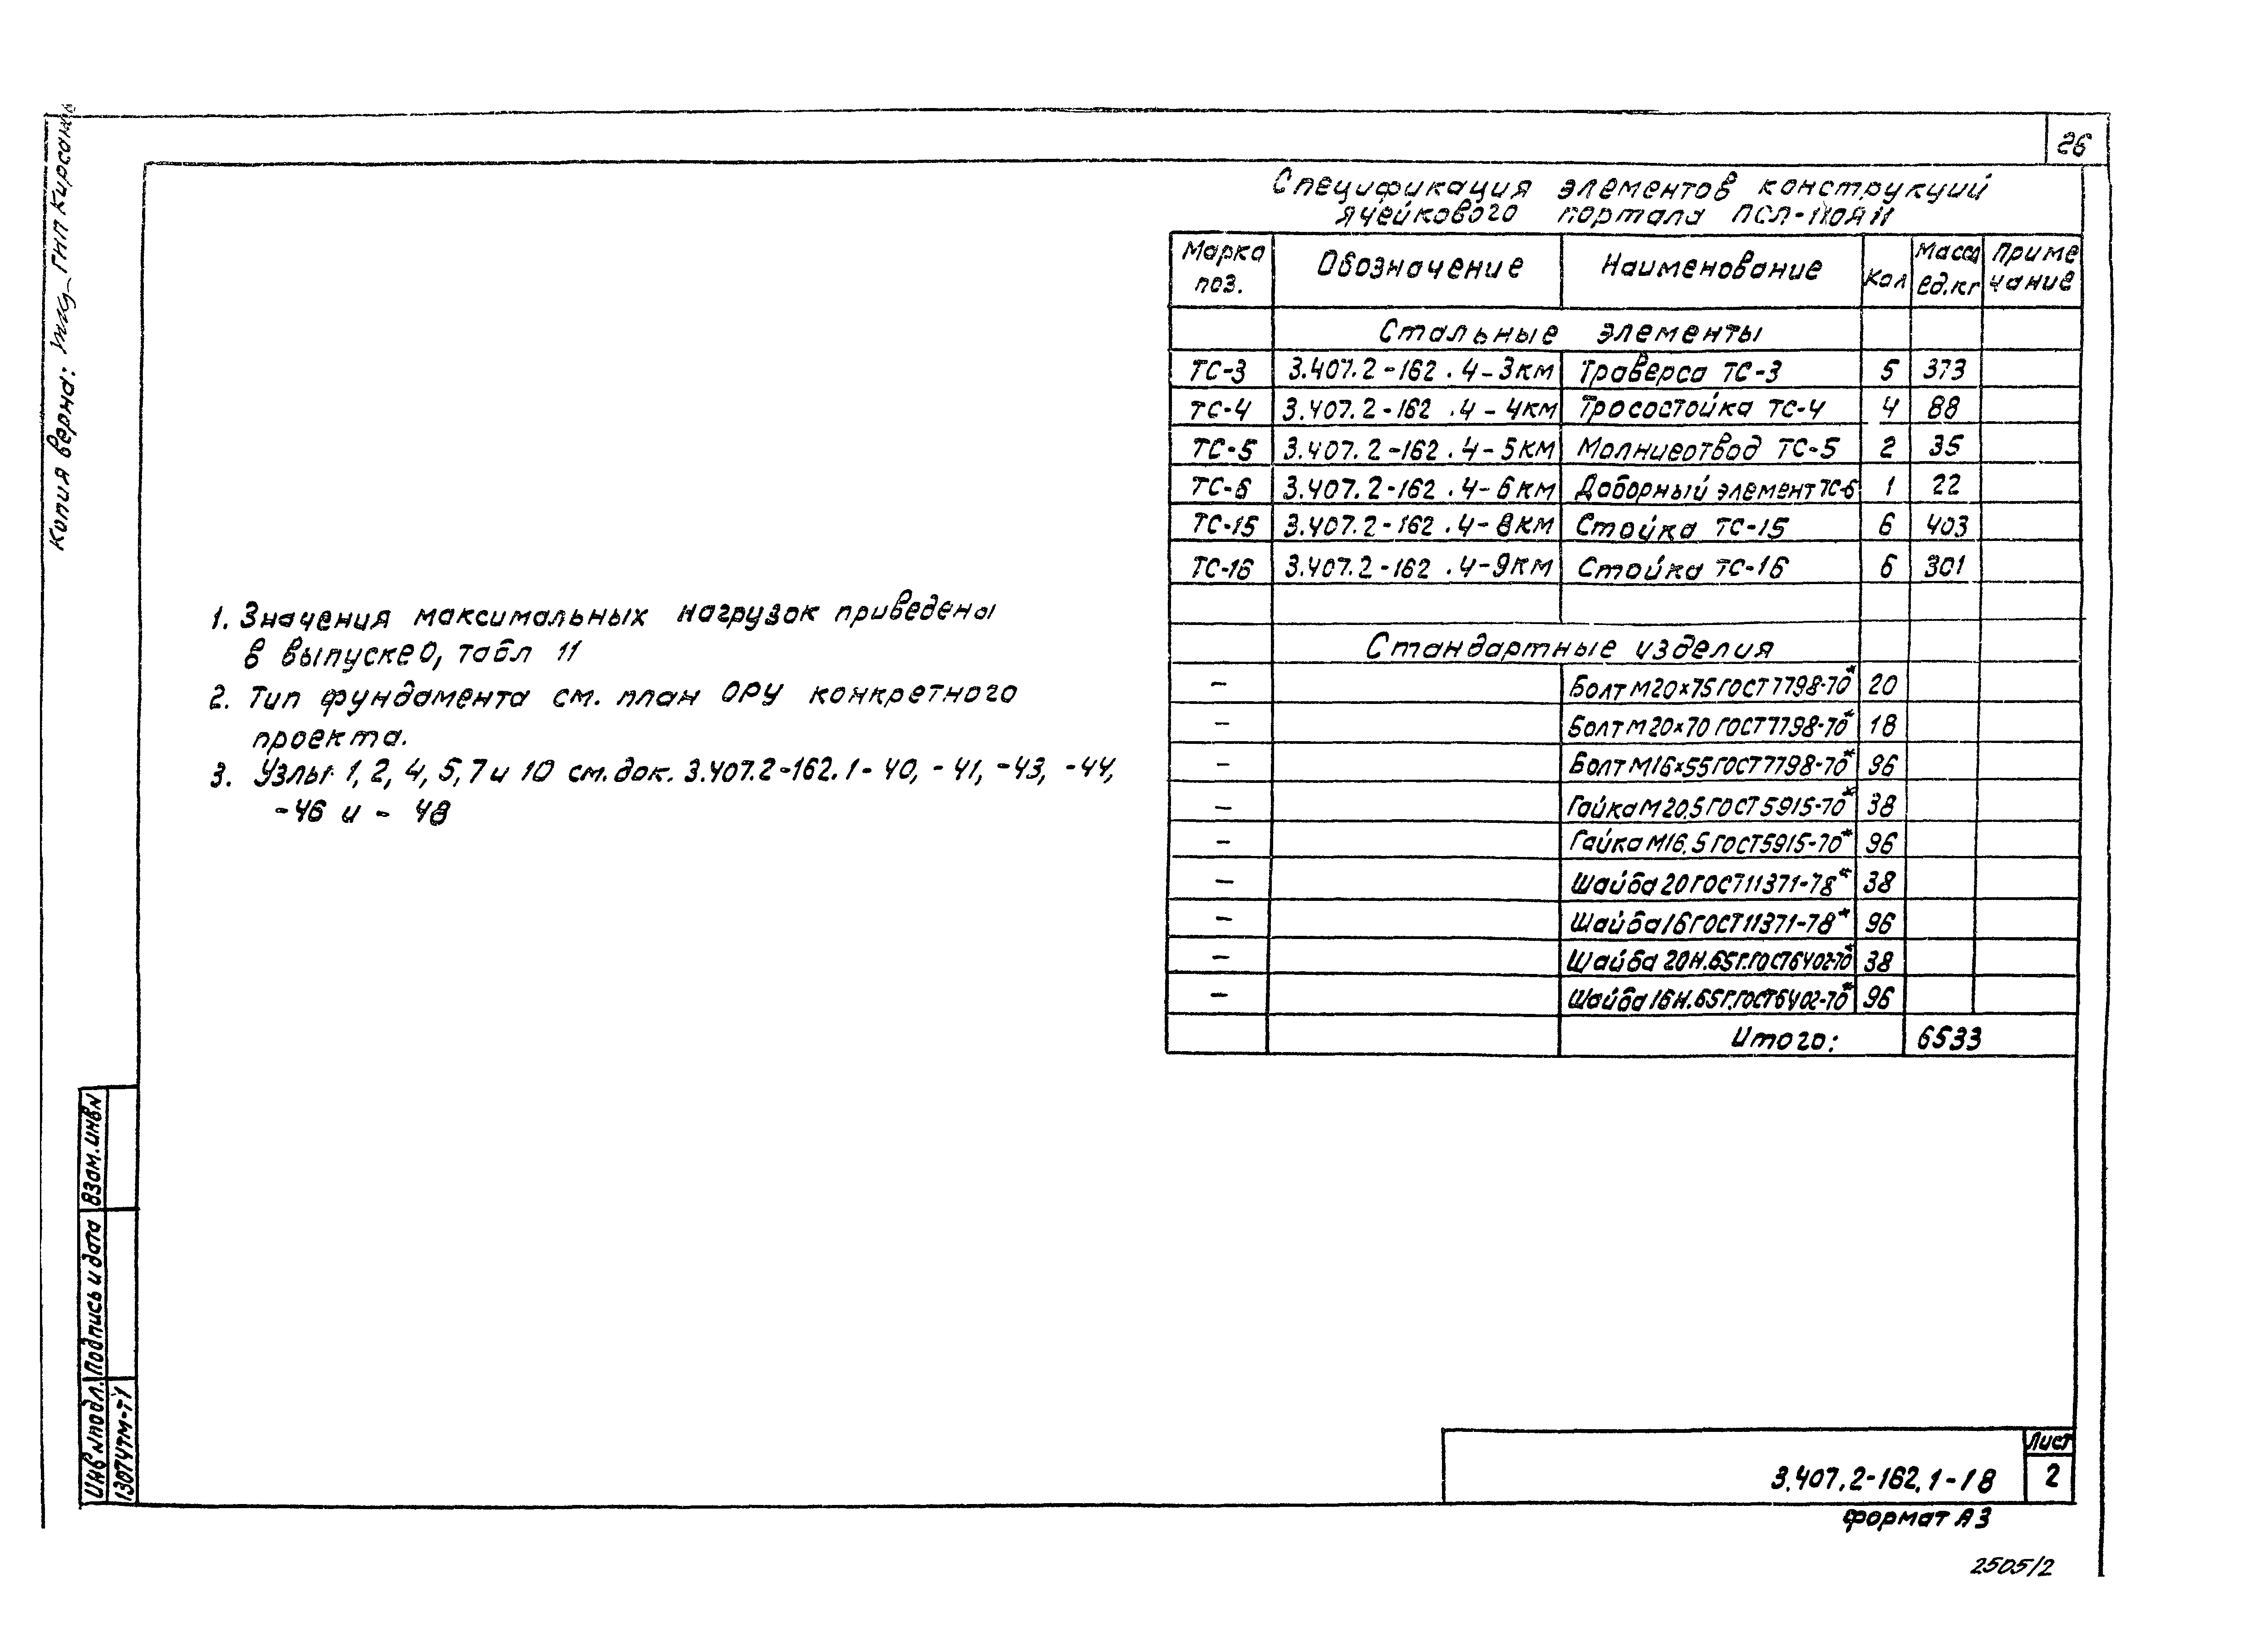 26
Копия верна: ГИП Кирсанов
Спецификация элементов конструкций
ячейкового портала ПСЛ-110Я11
Марка поз. Обозначение Наименование Кол Масса ед.кг Приме чание
Стальные элементы
ТС-3 3.407.2-162.4-3КМ Траверса ТС-3 5 373
ТС-4 3.407.2-162.4-4КМ Тросостойка ТС-4 4 88
ТС-5 3.407.2-162.4-5КМ Молниеотвод ТС-5 2 35
ТС-6 3.407.2-162.4-6КМ Доборный элемент ТС-6 1 22
ТС-15 3.407.2-162.4-8КМ Стойка ТС-15 6 403
ТС-16 3.407.2-162.4-9КМ Стойка ТС-16 6 301
Стандартные изделия
- Болт М20×75 ГОСТ 7798-70* 20
- Болт М20×70 ГОСТ 7798-70* 18
- Болт М16×55 ГОСТ 7798-70* 96
- Гайка М20.5 ГОСТ 5915-70* 38
- Гайка М16.5 ГОСТ 5915-70* 96
- Шайба 20 ГОСТ 11371-78* 38
- Шайба 16 ГОСТ 11371-78* 96
- Шайба 20Н.65Г.ГОСТ 6402-70* 38
- Шайба 16Н.65Г.ГОСТ 6402-70* 96
Итого: 6533
1. Значения максимальных нагрузок приведены
в выпуске 0, табл 11
2. Тип фундамента см. план ОРУ конкретного
проекта.
3. Узлы 1, 2, 4, 5, 7 и 10 см. док. 3.407.2-162.1-40, -41, -43, -44,
-46 и -48
Взам. инв N
Подпись и дата
Инв N подл.
13074тм-т1
3.407.2-162.1-18
Лист
2
формат А3
2505/2